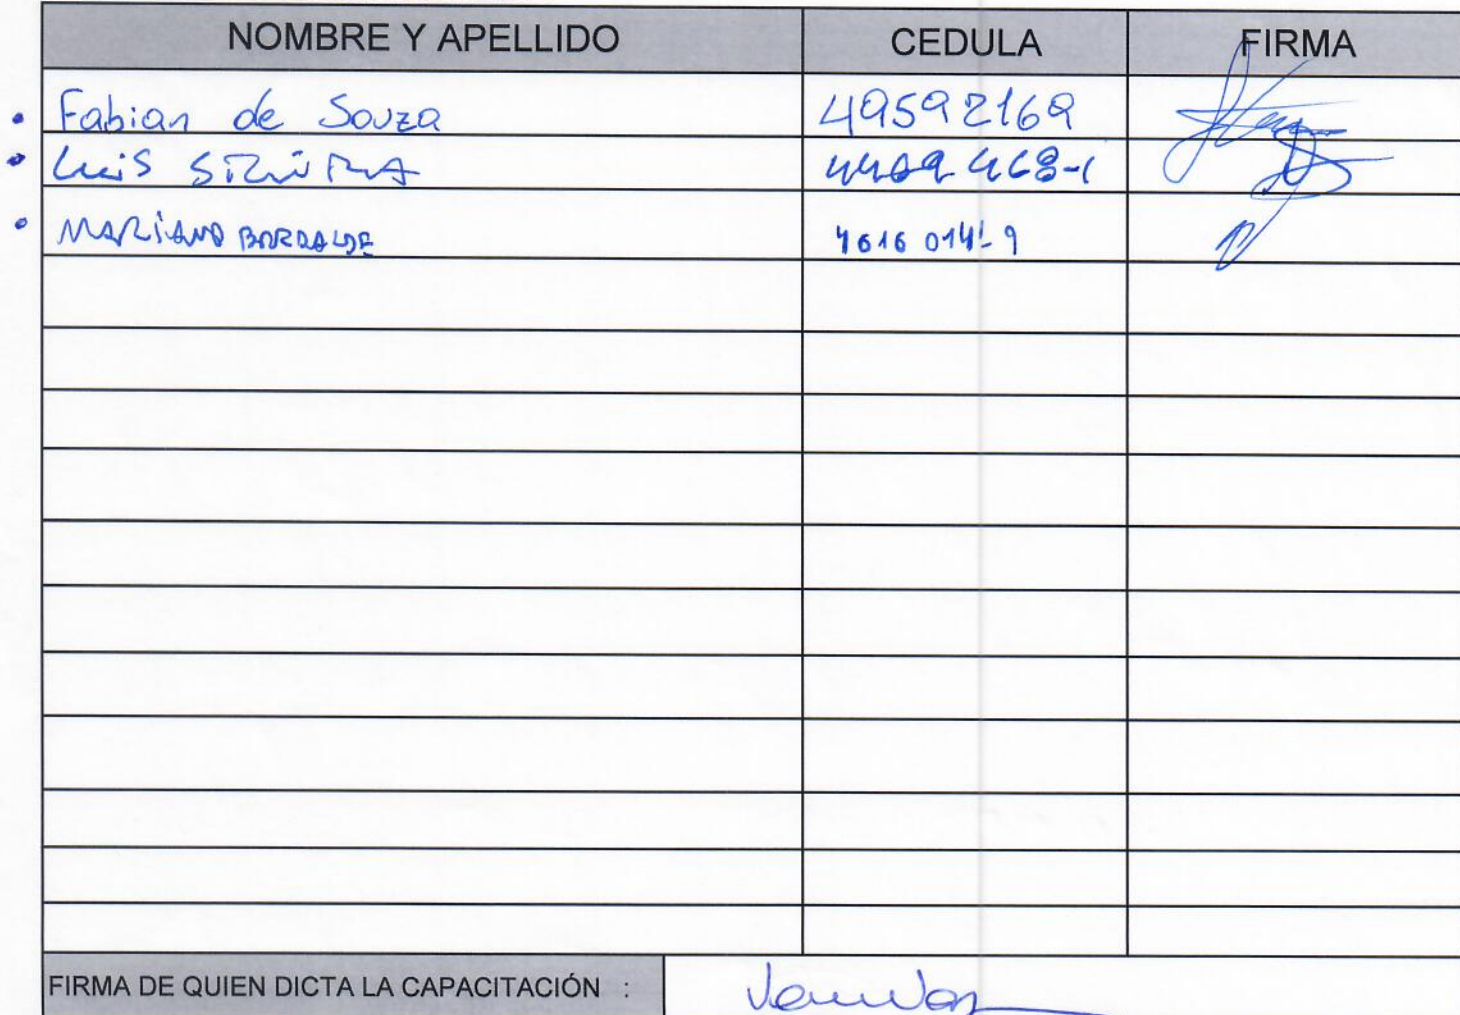 NOMBRE Y APELLIDO CEDULA FIRMA
Fabian de Souza 49592169
Luis
MARIANO 4616 014-9
FIRMA DE QUIEN DICTA LA CAPACITACIÓN :